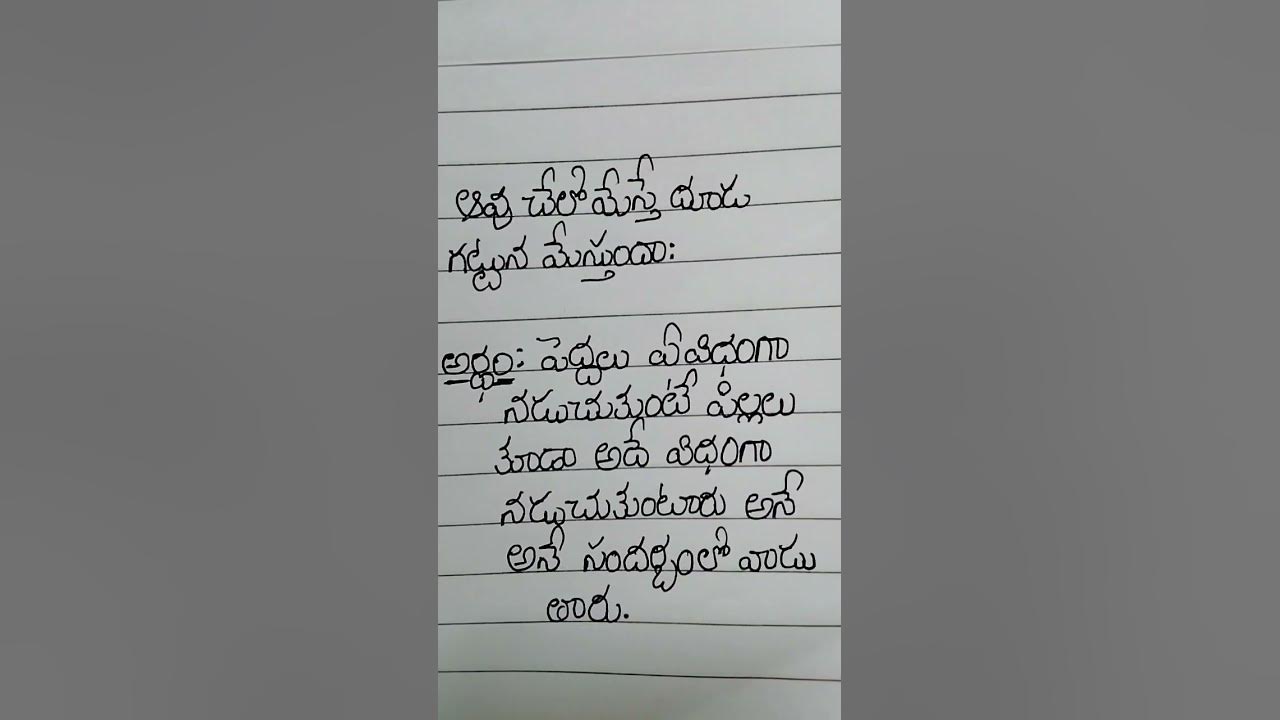 ఆవు చేలో మేస్తే దూడ
గట్టున మేస్తుందా:
అర్థం: పెద్దలు ఏవిధంగా
నడుచుకుంటే పిల్లలు
కూడా అదే విధంగా
నడ్చుచుకుంటారు అనే
అనే సందర్భంలో వాడు
తారు.